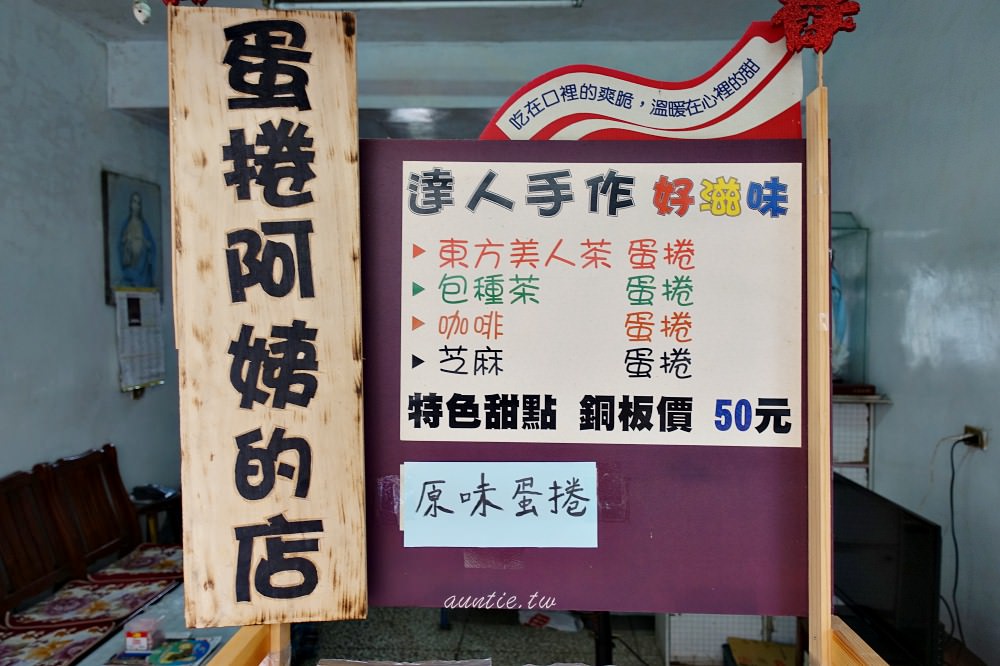 蛋捲阿姨的店
吃在口裡的爽脆，溫暖在心裡的甜
達人手作 好滋味
▶ 東方美人茶 蛋捲
▶ 包種茶 蛋捲
▶ 咖啡 蛋捲
▶ 芝麻 蛋捲
特色甜點 銅板價 50元
原味蛋捲
auntie.tw